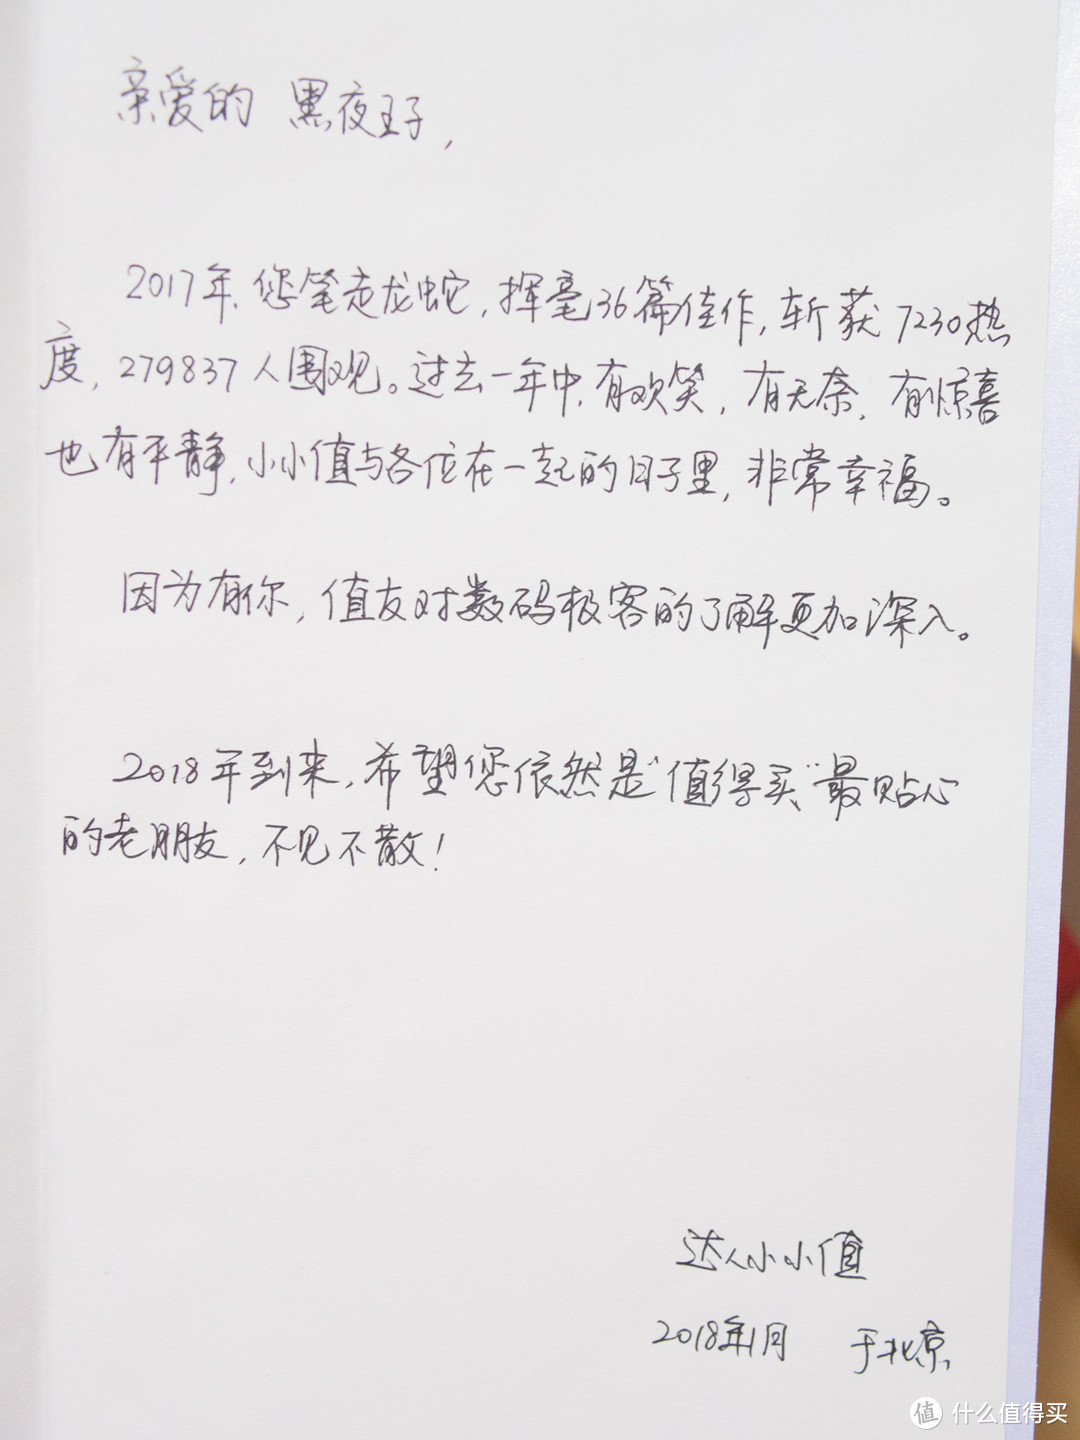 亲爱的 黑夜王子,
2017年,您笔走龙蛇,挥毫136篇佳作,斩获7230热
度,279837人围观。过去一年中,有欢笑,有无奈,有惊喜
也有平静,小小值与各位在一起的日子里,非常幸福。
因为有你,值友对数码极客的了解更加深入。
2018年到来,希望您依然是“值得买”最贴心
的老朋友,不见不散!
达人小小值
2018年1月 于北京
值 什么值得买